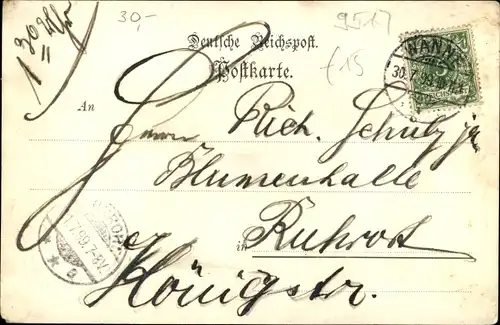 30,-
9517
£15
Deutsche Reichspost.
Postkarte.
WANNE
30.7.99
An
Herrn Rich. Schulz jr
Blumenhalle
in Ruhrort
Königstr.
RUHRORT
1.7.99.7-8V.
a